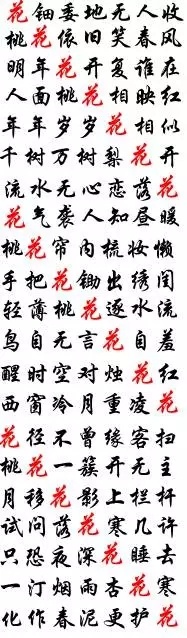 花钿委地无人收
桃花依旧笑春风
明年花开复谁在
人面桃花相映红
年年岁岁花相似
千树万树梨花开
流水无心恋落花
花气袭人知昼暖
桃花帘内梳妆懒
手把花锄出绣闺
轻薄桃花逐水流
鸟自无言花自羞
醒时空对烛花红
西窗冷月重凌花
花径不曾缘客扫
桃花一簇开无主
月移花影上栏杆
试问落花寒几许
只恐夜深花睡去
一汀烟雨杏花寒
化作春泥更护花